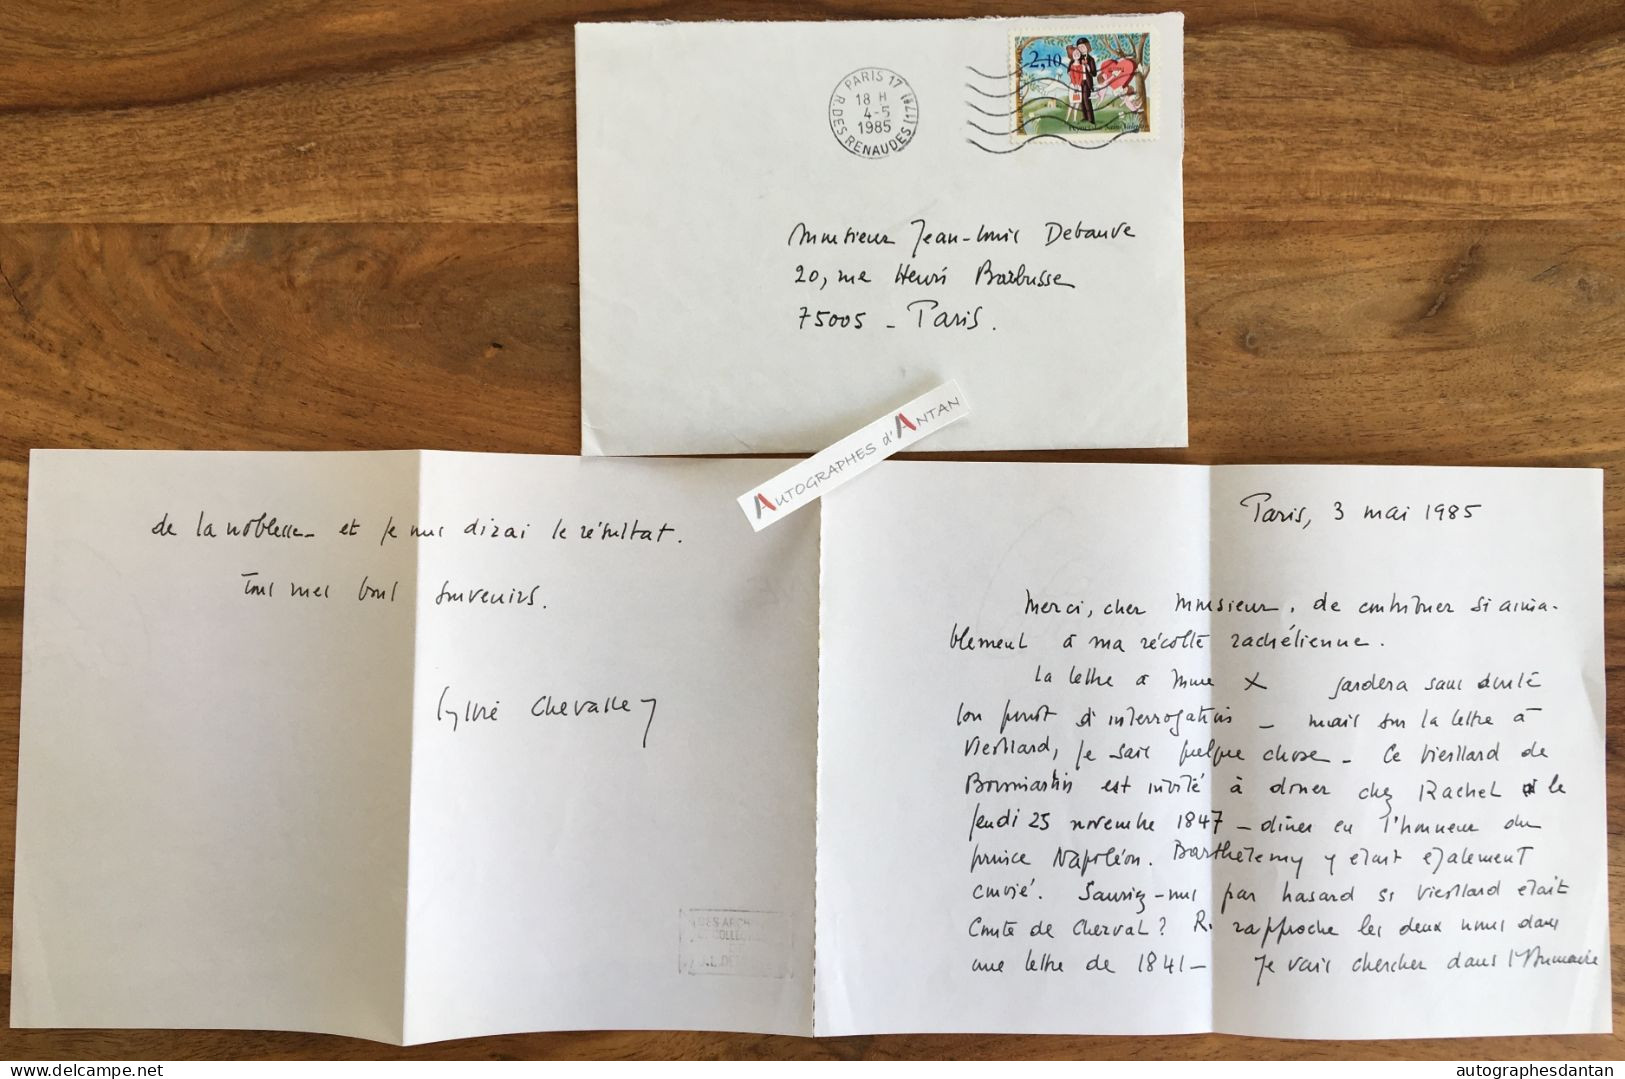 PARIS 17 (17è)
18 H
4-5
1985
R. DES RENAUDES
2,10
Monsieur Jean-Louis Debauve
20, rue Henri Barbusse
75005 - Paris.
AUTOGRAPHES d'ANTAN
Paris, 3 mai 1985
Merci, cher Monsieur, de contribuer si aima-
blement à ma récolte rachélienne.
La lettre à Mme X gardera sans doute
son point d'interrogation - mais sur la lettre à
Vieillard, je sais quelque chose - Ce Vieillard de
Boismartin est invité à dîner chez Rachel le
jeudi 25 novembre 1847 - dîner en l'honneur du
prince Napoléon. Barthélemy y était également
convié. Sauriez-vous par hasard si Vieillard était
Comte de Cherval ? R. rapproche les deux noms dans
une lettre de 1841 - Je vais chercher dans l'Annuaire
de la noblesse - et je vous dirai le résultat.
Tous mes bons souvenirs.
Sylvie Chevalley
DES ARCHIVES
COLLECTIONS
J.L. DEBAUVE
www.delcampe.net
autographesdantan